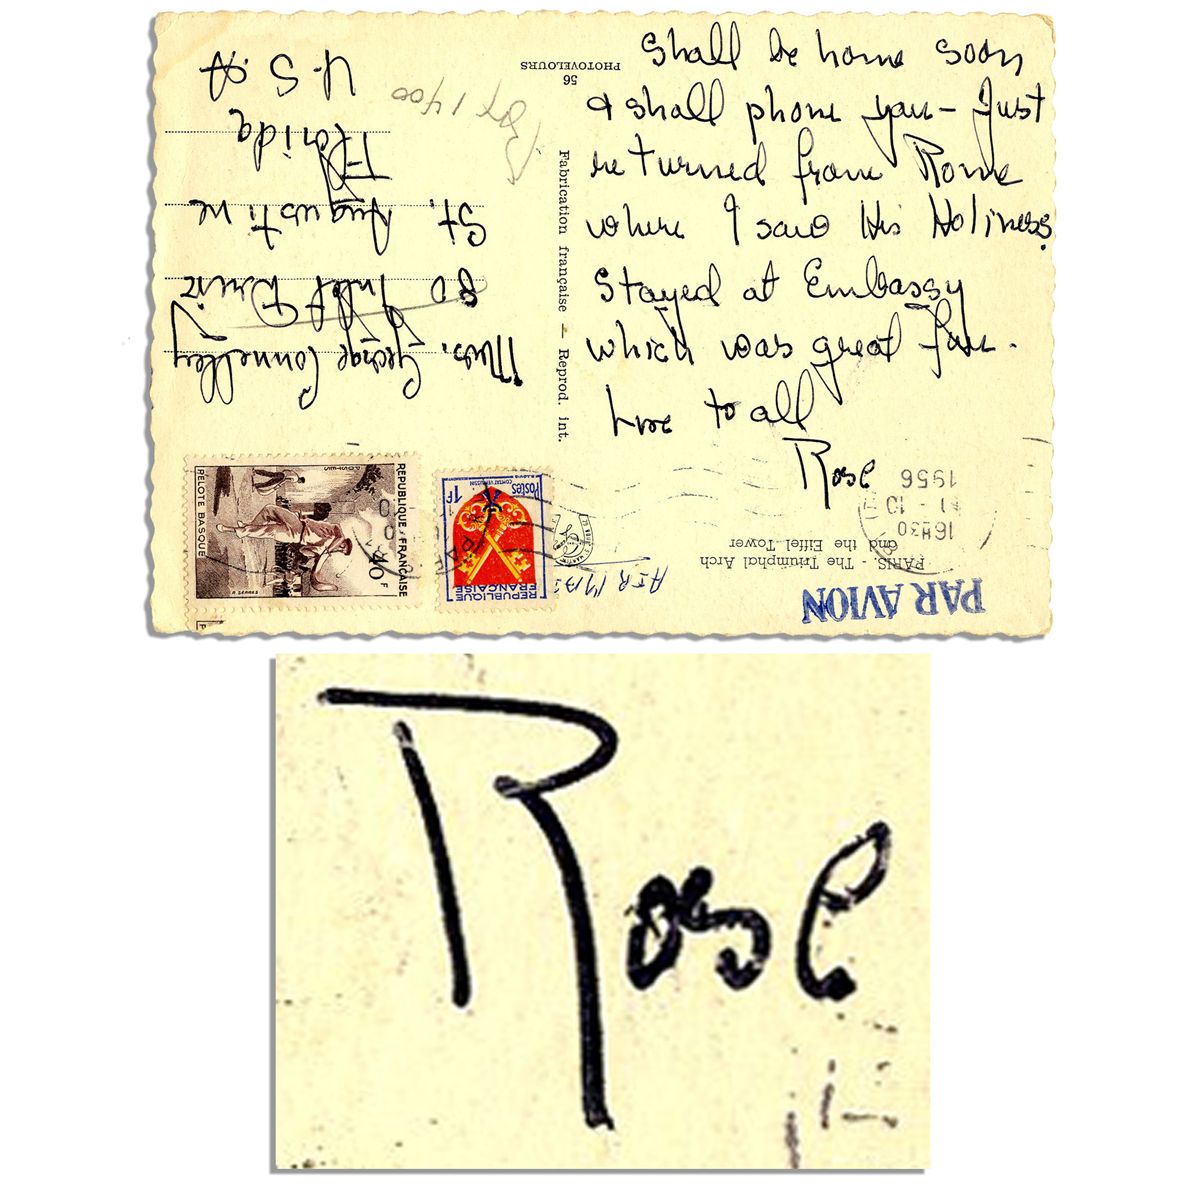 shall be home soon
& shall phone you - Just
returned from Rome
where I saw His Holiness.
Stayed at Embassy
which was great fun.
Love to all
Rose
Mrs. George Connelley
80 Inlet Drive
St. Augustine
Florida
U.S.A
Box 1400
56
PHOTOVELOURS
Fabrication française — Reprod. int.
PARIS - The Triumphal Arch
and the Eiffel Tower
PAR AVION
16H30
1956
REPUBLIQUE FRANÇAISE
PELOTE BASQUE
POSTES
1F
COMTAT VENAISSIN
REPUBLIQUE
FRANÇAISE
AIR
Rose